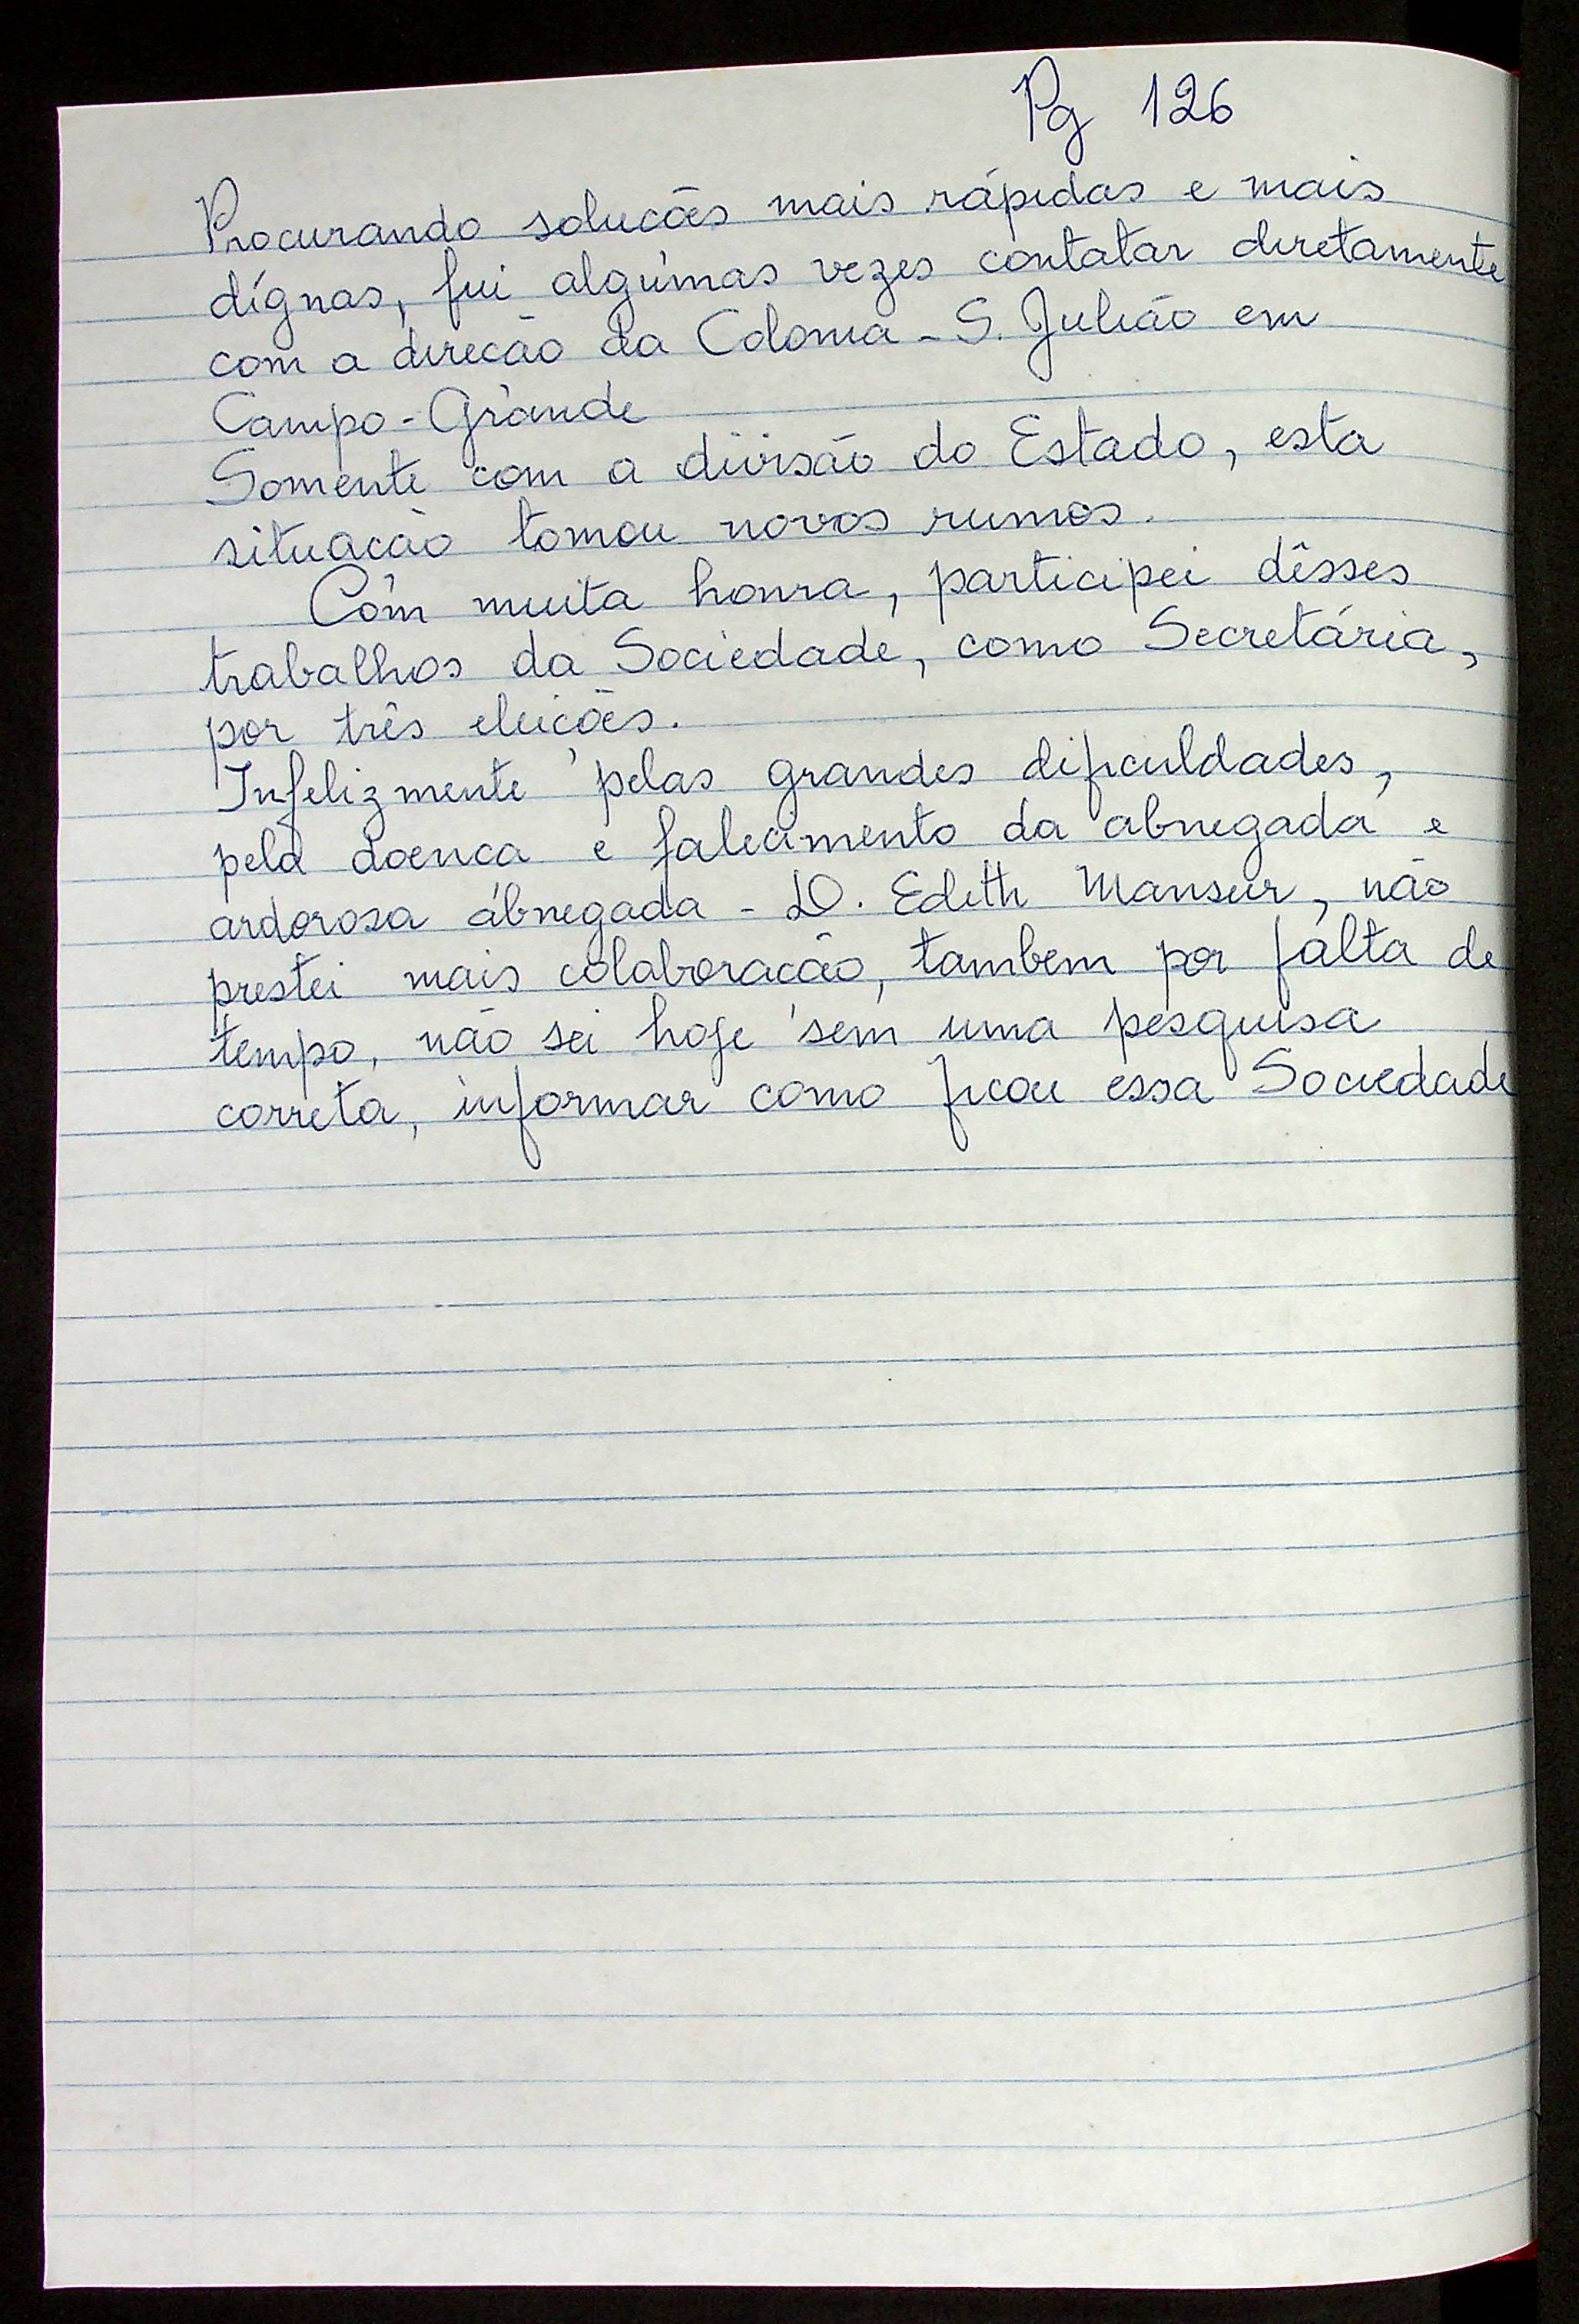 Pg 126
Procurando solucões mais rápidas e mais
dígnas, fui algumas vezes contatar diretamente
com a direcão da Colonia - S. Julião em
Campo-Grande
Somente com a divisão do Estado, esta
situacão tomou novos rumos.
Com muita honra, participei dêsses
trabalhos da Sociedade, como Secretária,
por três eleicões.
Infelizmente pelas grandes dificuldades,
pela doenca e falecimento da abnegada e
ardorosa abnegada - D. Edith Mansur, não
prestei mais colaboracão, tambem por falta de
tempo, não sei hoje sem uma pesquisa
correta, informar como ficou essa Sociedade